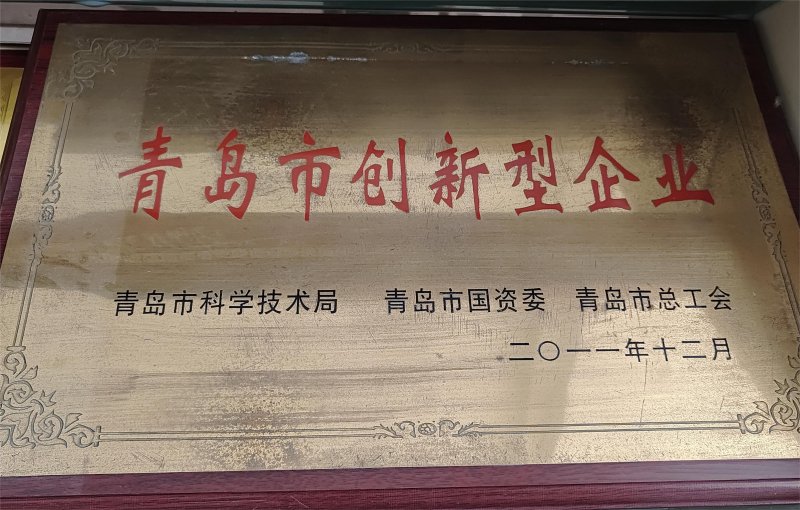 青岛市创新型企业
青岛市科学技术局 青岛市国资委 青岛市总工会
二〇一一年十二月